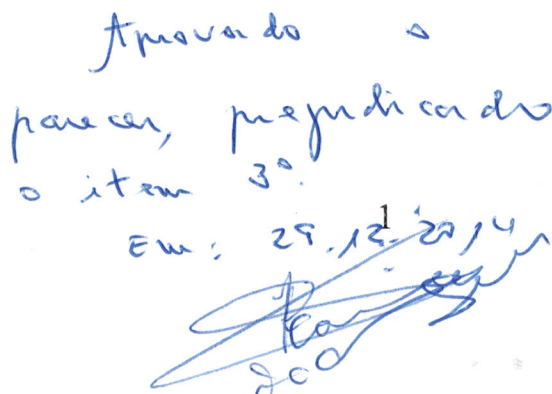 Aprovado o
parecer, prejudicando
o item 3º.
Em: 29.12.2014
1